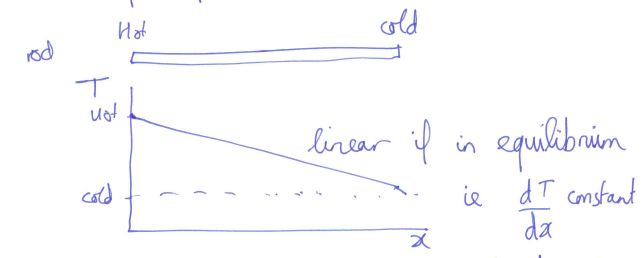 Hot cold
rod
T
Hot
linear if in equilibrium
cold ie dT/dx constant
x